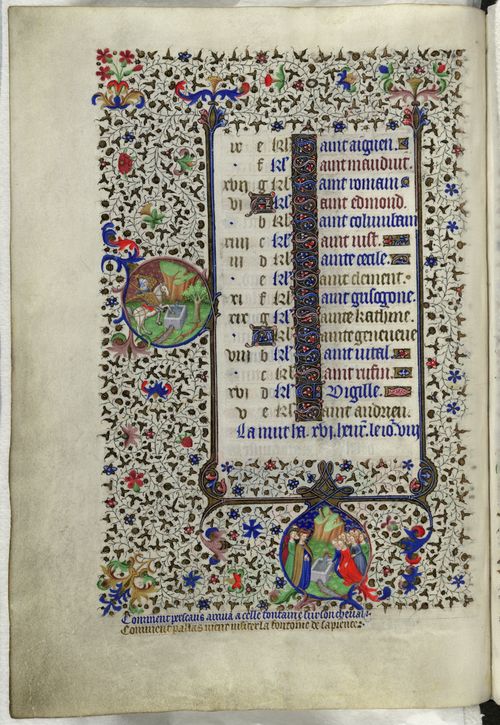 e kl' Saint aignen.
f kl' Saint mandiut.
xvii g kl' Saint romain
vi A kl' Saint edmond.
b kl' Saint columbain
xiiii c kl' Saint iust.
iii d kl' Sainte cecile.
e kl' Saint clement.
xi f kl' Saint grisogone.
xix g kl' Sainte katherine.
A kl' Sainte geneuieue
viii b kl' Saint vital.
c kl' Saint rufin.
xvi d kl' Vigille.
v e kl' Saint andrieu.
La nuit ha .xvi. heur. le io. viii
Comment perseus ariua a celle fontaine sur son cheual.
Comment pallas vient visiter la fontaine de sapience.